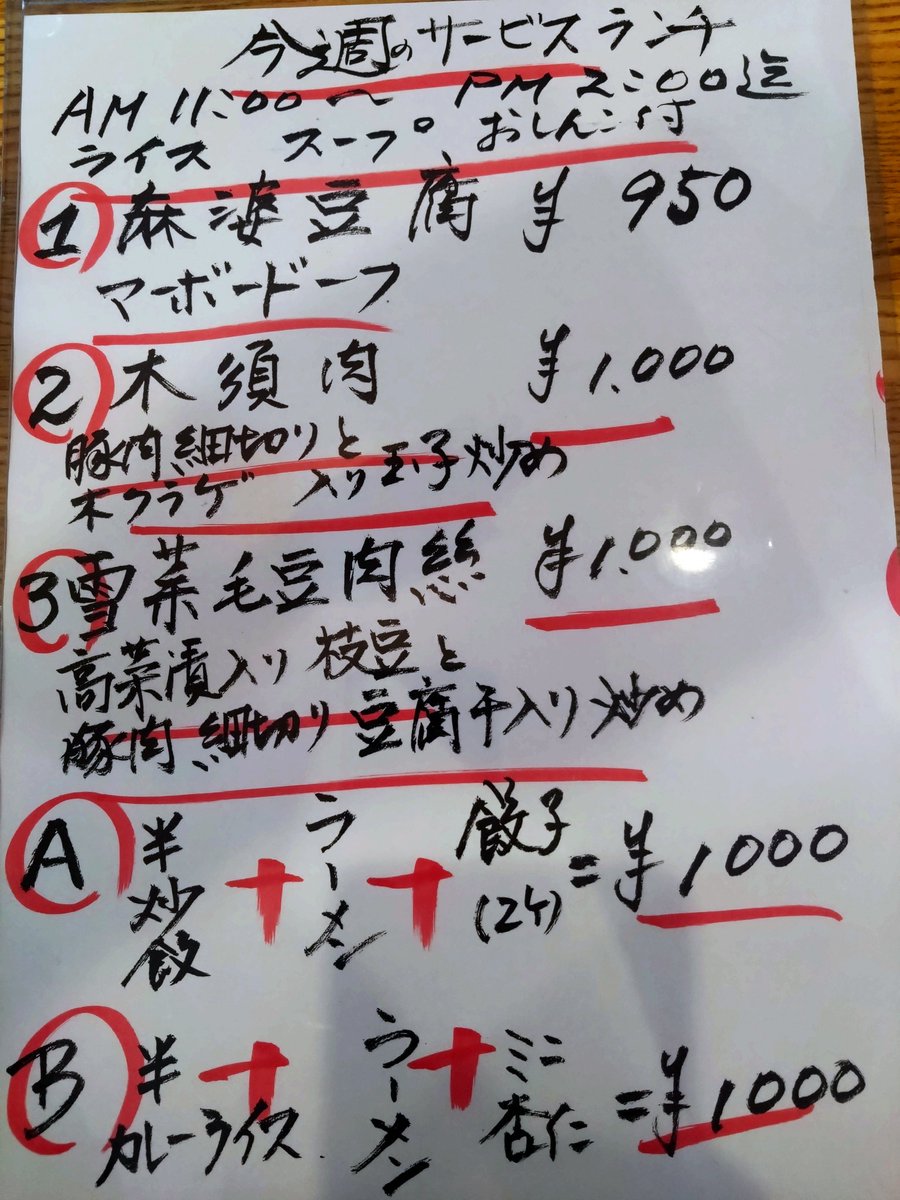 今週のサービスランチ
AM 11:00〜PM 2:00迄
ライス スープ おしんこ付
① 麻婆豆腐 ¥950
マーボードーフ
② 木須肉 ¥1.000
豚肉細切りと
木クラゲ入り玉子炒め
③ 雪菜毛豆肉絲 ¥1.000
高菜漬入り枝豆と
豚肉細切り豆腐干入り炒め
A 半炒飯+ラーメン+餃子(2ケ)=¥1000
B 半カレーライス+ラーメン+ミニ杏仁=¥1000